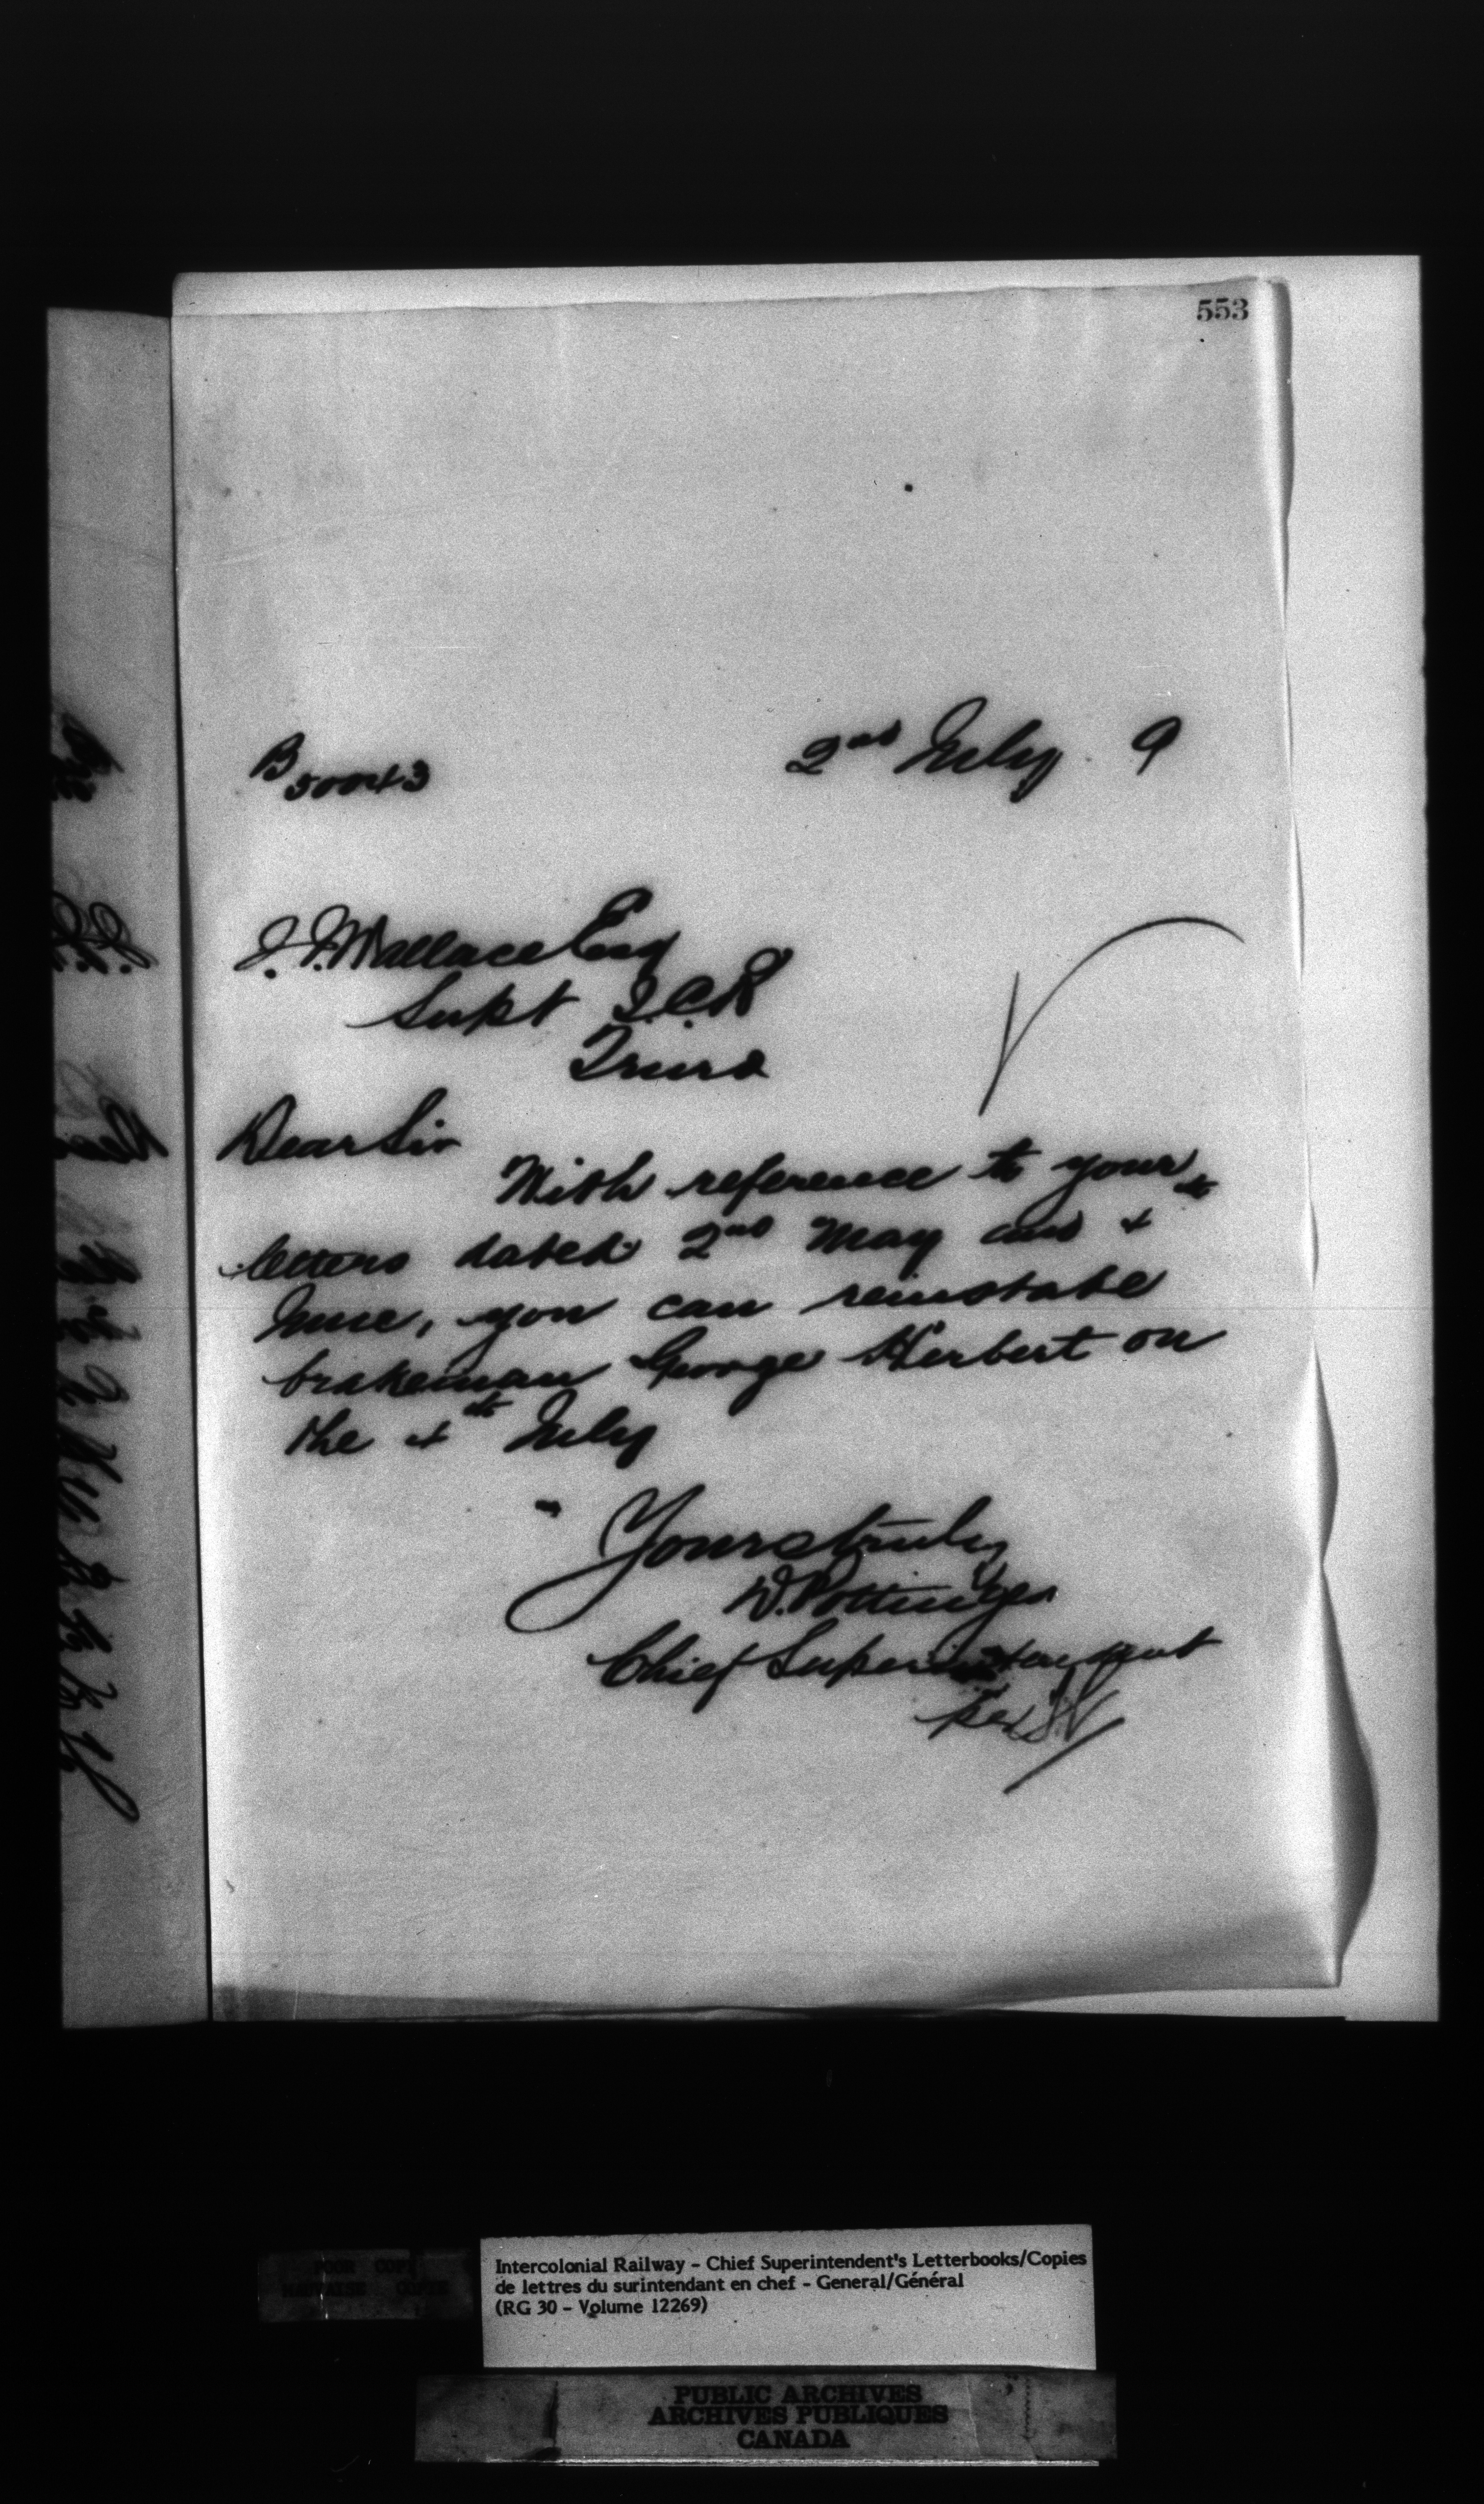 553
B 50043
2nd July 9
J. J. Wallace Esq
Supt I.C.R
Truro
Dear Sir
With reference to your
letters dated 2nd May and 4th
June, you can reinstate
brakeman George Herbert on
the 4th July
Yours truly
D. Pottinger
Chief Superintendent
per
POOR COPY
MAUVAISE COPIE
Intercolonial Railway - Chief Superintendent's Letterbooks/Copies
de lettres du surintendant en chef - General/Général
(RG 30 - Volume 12269)
PUBLIC ARCHIVES
ARCHIVES PUBLIQUES
CANADA